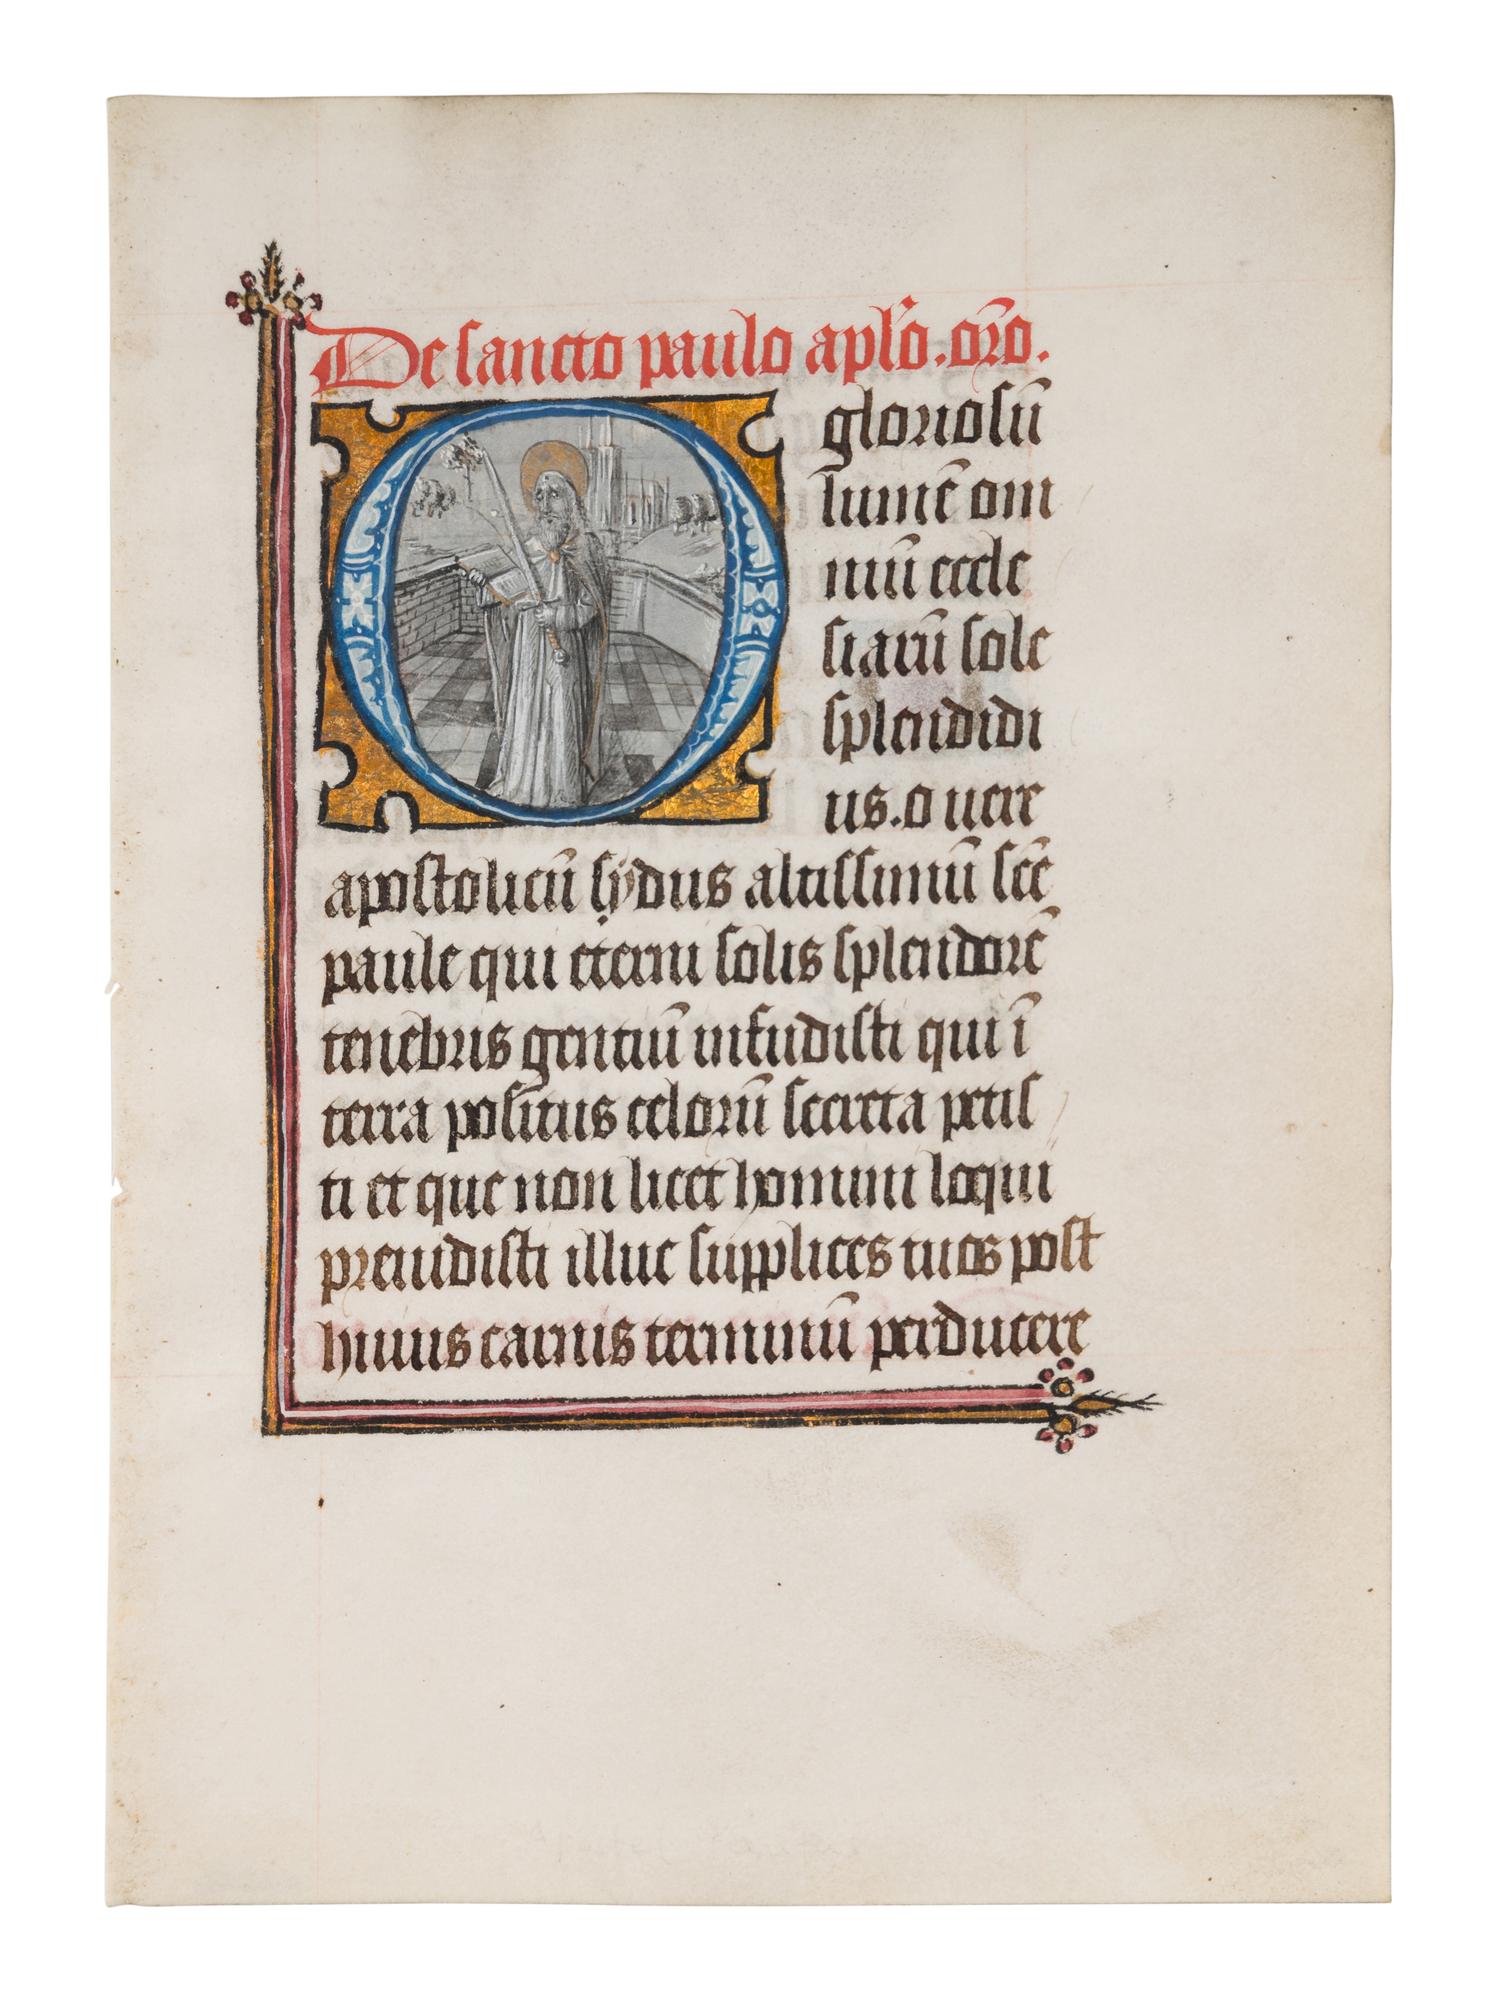 De sancto paulo apl'o. or̄o.
O gloriosū
lumē om
niū eccle
siarū sole
splendidi
us. o uere
apostolicū sÿdus altissimū scē
paule qui eterni solis splendorē
tenebris gentiū infudisti qui ī
terra positus celorū secreta petis
ti et que non licet homini loqui
preuidisti illuc supplices tuos post
huius carnis terminū perducere